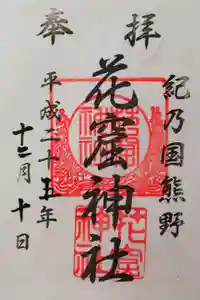 奉拝
紀乃国熊野
花窟神社
平成二十五年
十二月十日
花窟
神社